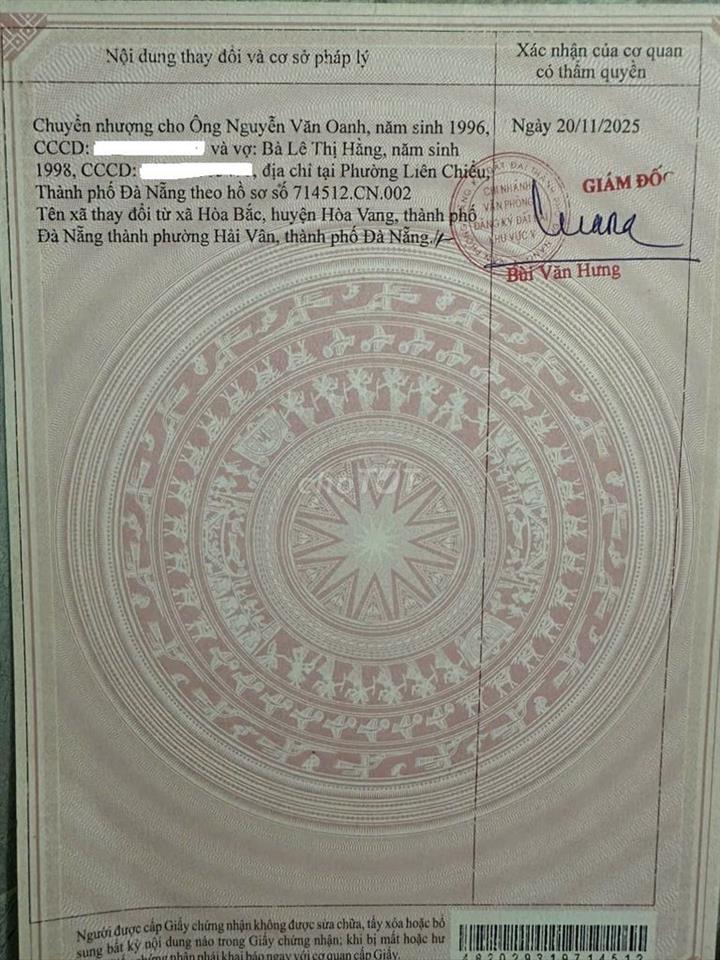 Nội dung thay đổi và cơ sở pháp lý
Xác nhận của cơ quan
có thẩm quyền
Chuyển nhượng cho Ông Nguyễn Văn Oanh, năm sinh 1996,
CCCD: và vợ: Bà Lê Thị Hằng, năm sinh
1998, CCCD: , địa chỉ tại Phường Liên Chiểu,
Thành phố Đà Nẵng theo hồ sơ số 714512.CN.002
Tên xã thay đổi từ xã Hòa Bắc, huyện Hòa Vang, thành phố
Đà Nẵng thành phường Hải Vân, thành phố Đà Nẵng./.
Ngày 20/11/2025
GIÁM ĐỐC
CHI NHÁNH
VĂN PHÒNG
ĐĂNG KÝ ĐẤT ĐAI
KHU VỰC V
Bùi Văn Hưng
choTỐT
Người được cấp Giấy chứng nhận không được sửa chữa, tẩy xóa hoặc bổ
sung bất kỳ nội dung nào trong Giấy chứng nhận; khi bị mất hoặc hư
chứng nhận phải khai báo ngay với cơ quan cấp Giấy.
482029319714512